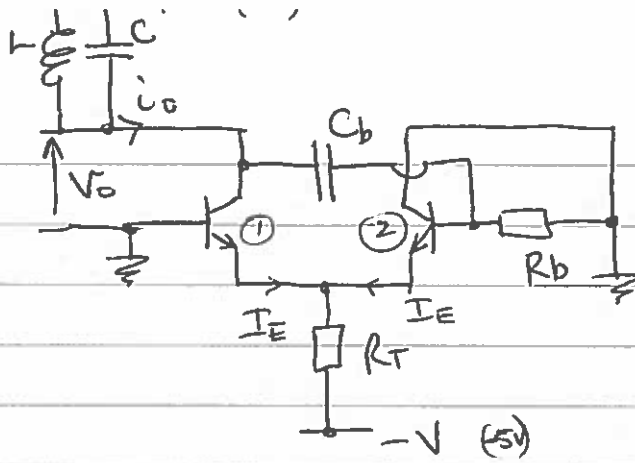 L C
io
Cb
Vo
① ②
Rb
IE IE
RT
-V (-5V)